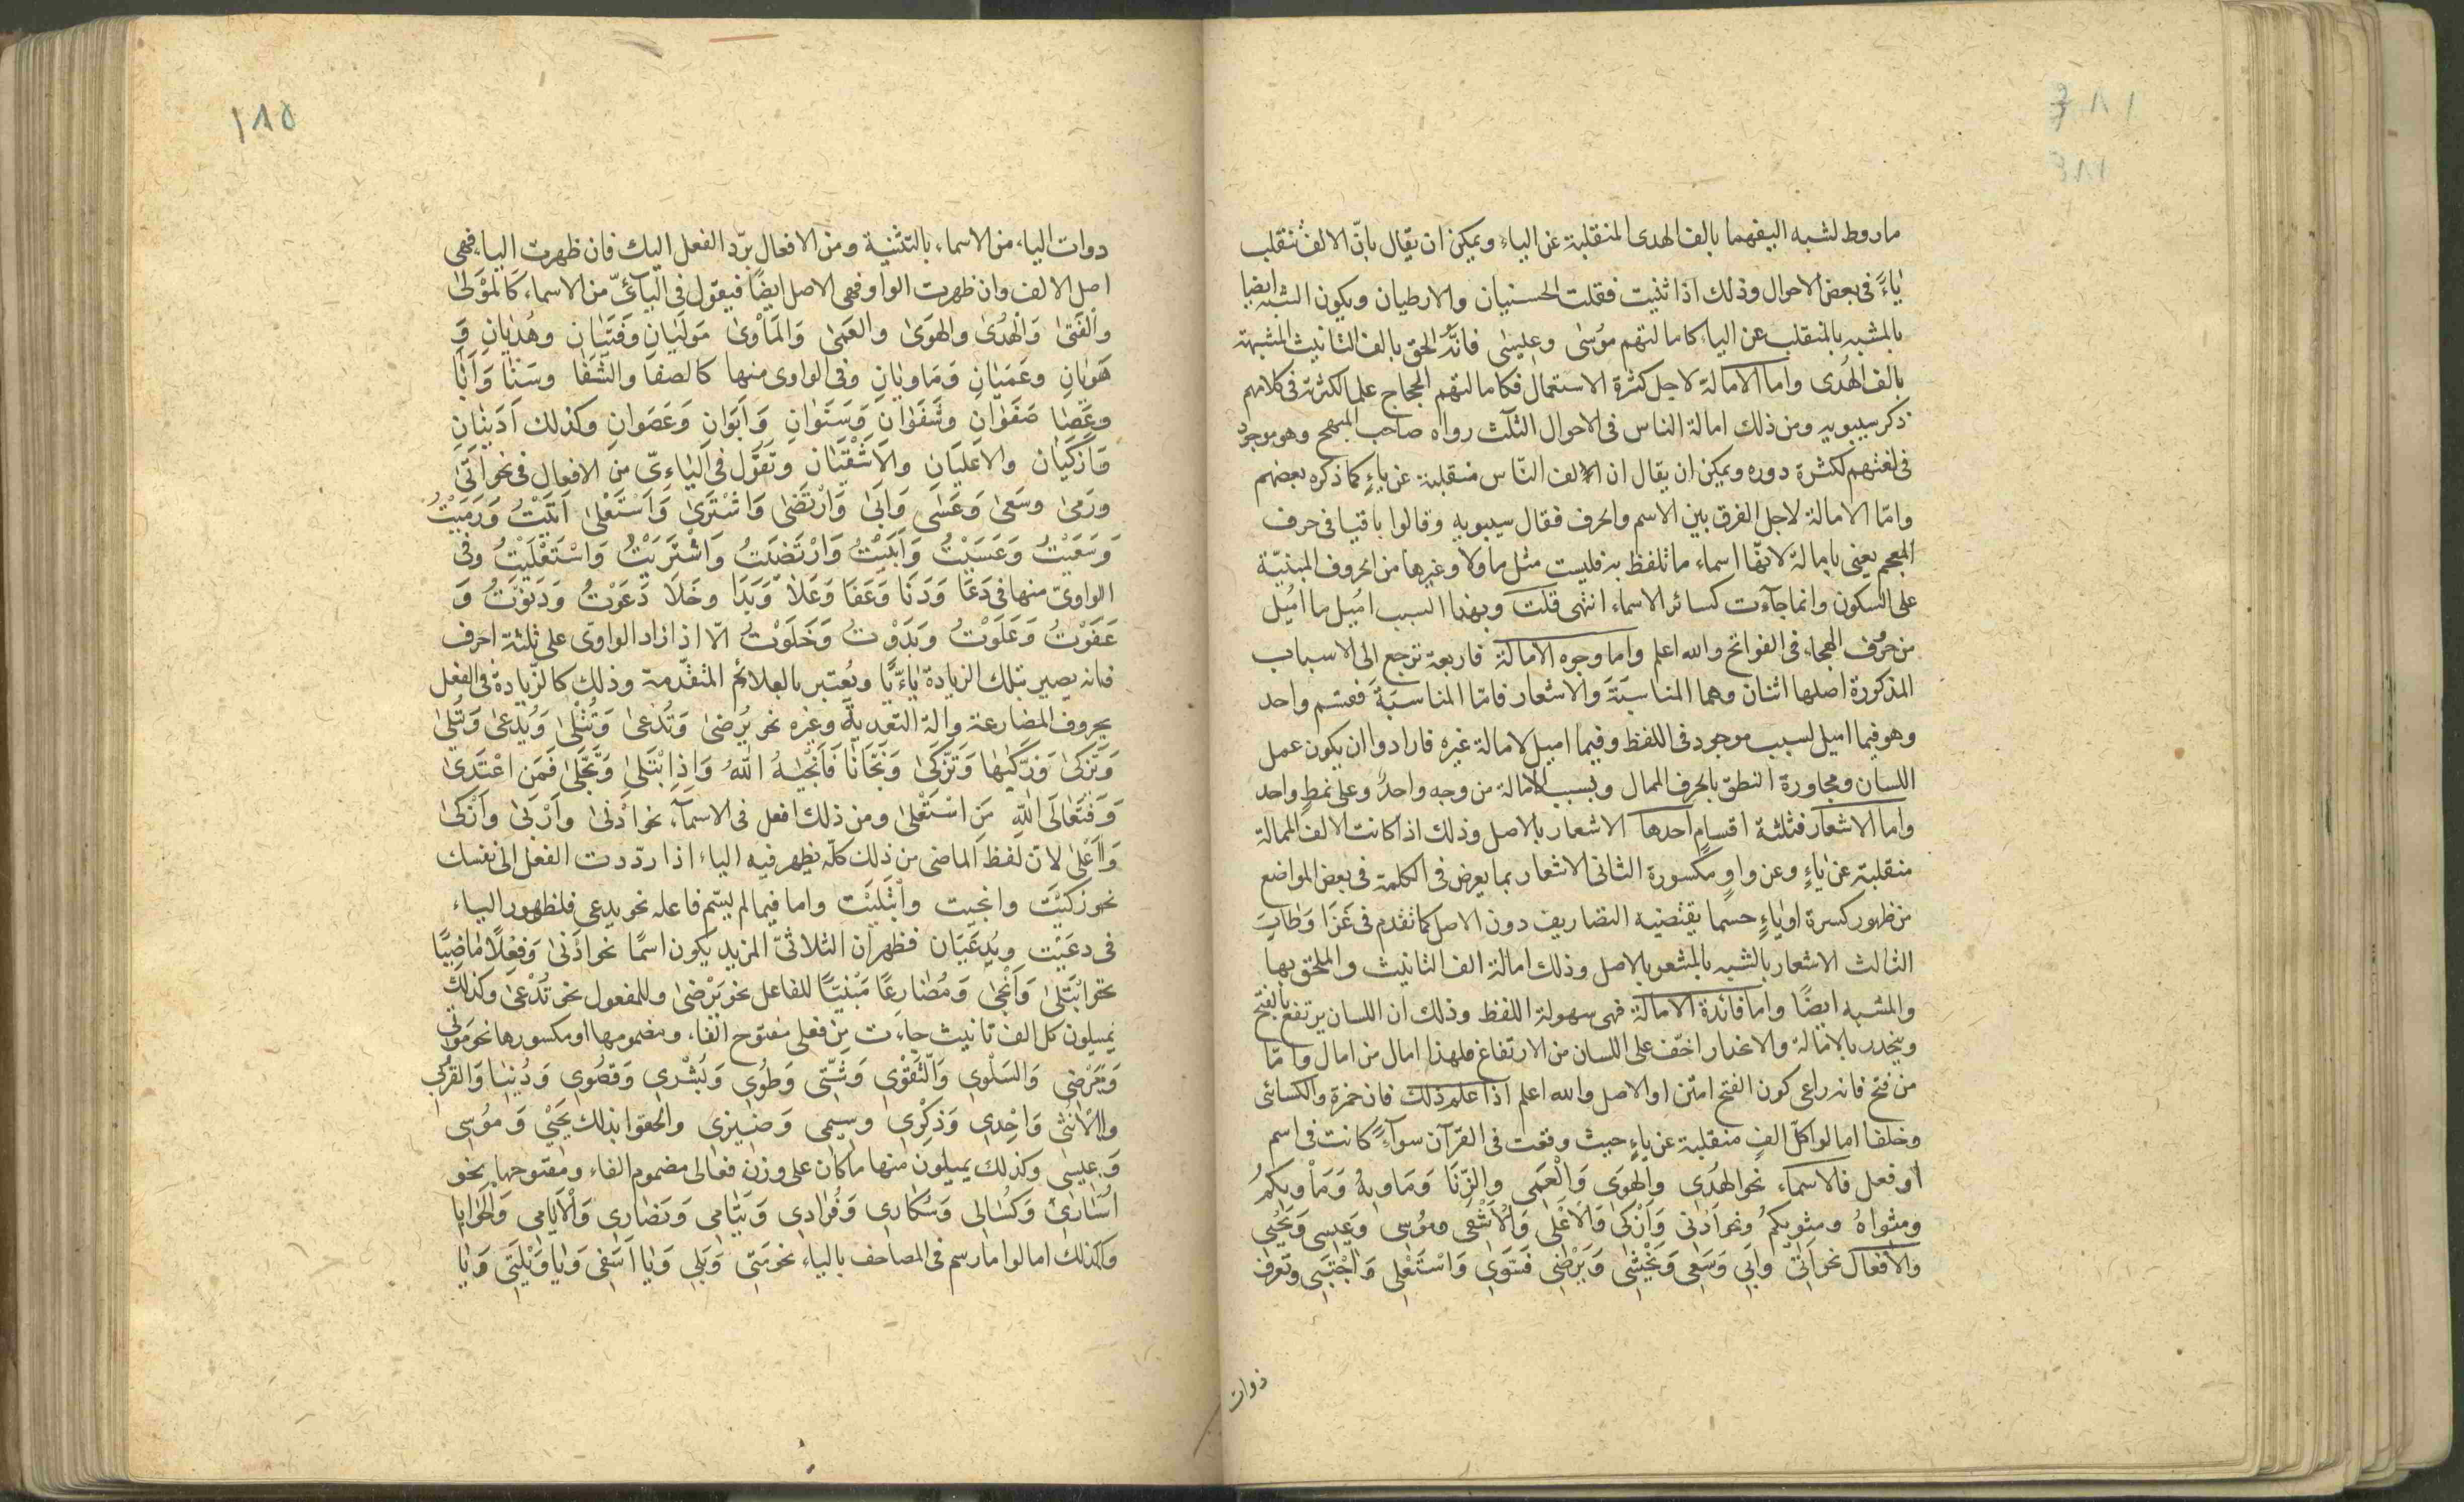 ١٨٤
١٨٤
ماروط لشبه اليفهما بالف الهدى المنقلبة عن الياء ويمكن ان يقال بانّ الالف تنقلب
ياءً فى بعض الاحوال وذلك اذا ثنيت فقلت الحسنيان والارطيان ويكون الشبه ايضا
بالمشبه بالمنقلب عن الياء كامالتهم مُوسٰى وعيسٰى فانّه الحق بالف التانيث المشبهة
بالف الهُدى واما الامالة لاجل كثرة الاستعمال فكامالتهم الحجاج علما لكثرته فى كلامهم
ذكر سيبويه ومن ذلك امالة الناس فى الاحوال الثلث رواه صاحب المبهج وهو موجود
فى لغتهم لكثرة دوره ويمكن ان يقال ان الالف النّاس منقلبة عن ياءٍ كما ذكره بعضهم
وامّا الامالة لاجل الفرق بين الاسم والحرف فقال سيبويه وقالوا باقيا فى حرف
المعجم يعنى بامالة لانهّا اسماء ما تلفظ به فليست مثل ما ولا وغيرها من الحروف المبنيّة
على السكون وانما جآءت كسائر الاسماء انتهى قلت وبهذا السبب اُميل ما اُميل
من حُروف الهجاء فى الفواتح والله اعلم واما وجوه الامالة فاربعة ترجع الى الاسباب
المذكورة اصلها اثنان وهما المناسَبَة والاشعار فامّا المناسَبَة فقسم واحد
وهو فيما اميل لسبب موجود فى اللفظ وفيما اميل لامالة غيره فارادوا ان يكون عمل
اللسان ومجاورة النطق بالحرف الممال وبسبب الامالة من وجه واحدٍ وعلى نمطٍ واحد
واما الاشعار فثلثة اقسام احدها الاشعار بالاصل وذلك اذا كانت الالف الممالة
منقلبة عن ياءٍ وعن واوٍ مكسورة الثانى الاشعار بما يعرض فى الكلمة فى بعض المواضع
من ظهور كسرة او ياءٍ حسما يقتضيه التصاريف دون الاصل كما تقدم فى غَزَا وَطَابَ
الثالث الاشعار بالشبه بالمشعر بالاصل وذلك امالة الف التانيث والملحق بها
والمشبه ايضًا واما فائدة الامالة فهى سهولة اللفظ وذلك ان اللسان يرتفع بالفتح
وينحدر بالامالة والانحدار اخّف على اللسان من الارتفاع فلهذا امال من امال وامّا
من فتح فانه راعى كون الفتح امتن او الاصل والله اعلم اذا علم ذلك فان حمزة والكسائى
وخلفا امالوا كلّ الف منقلبة عن ياءٍ حيث وقعت فى القرآن سوآءً كانت فى اسم
او فعل فالاسماء نحو الهُدى والهوَى وَالْعَمى والزِّنَا وَمَاويهُ وَمَاْويكمُ
ومثواهُ ومثويكمُ ونحو اَدْنى وَاَزْكى وَالاَعْلى وَالْاَشْقى وموُسى وَعيسى وَيَحْيى
والافعال نحو اَتىٰ وابَى وَسَعى وَيَخْشى وَيَرْضى فسَوّى وَاسْتَعْلى وَاجْتَبى وتعرف
ذوات
١٨٥
دوات الياء من الاسماء بالتثنية ومن الافعال برّد الفعل اليك فان ظهرت الياء فهى
اصل الالف وان ظهرت الواو فهى الاصل ايضًا فيقول فى اليآئىّ من الاسماء كَالمَوْلىٰ
والْفَتىٰ وَالْهُدىٰ والهوَىٰ والعَمىٰ وَالمَاْوىٰ مَولَيَانِ وَفَتَيَانِ وهُدَيَانِ وَ
هَوَيَانِ وعَمَيَانِ وَمَاويَانِ وفى الواوى منها كالصفا والشَّفَا وسَنَا وَاَبَا
وعَصَا صَفَوَانِ وشَفَوَانِ وَسَنَوانِ وَاَبَوَانِ وَعَصَوانِ وكذلك اَدَنيَانِ
وَاَزْكَيَان والاَعْلَيَانِ والاَشْقَيَان وتقوُل فى اليٰاءىّ من الافعال فى نحو اَتىٰ
ورَمىٰ وسَعىٰ وَعَسَى وَابَىٰ وَارْتَضىٰ وَاشْتَرَىٰ وَاسْتَعْلىٰ اَتَيْتُ وَرَمَيْتُ
وَسَعَيْتُ وَعَسَيْتُ وَاَبَيْتُ وَارْتَضَيتُ وَاشْتَرَيْتُ وَاسْتَعْلَيْتُ وفى
الواوىّ منها فى دَعَا وَدَنَا وَعَفَا وَعَلاَ وَبَدَا وخَلَا دَعَوْتُ وَدَنَوْتُ وَ
عَفَوْتُ وَعَلَوْتُ وبَدَوْتُ وَخَلَوْتُ الّا اذا زاد الواوى على ثلثة احرف
فانه يصير بتلك الزيادة يٰاءِيًّا ويُعتبر بالعلائم المتقدّمة وذلك كالزّيادة فى الفعل
بحروف المضارعة وآلة التعدية وغيره نحو يُرضىٰ وَتُدعىٰ وَتُتْلىٰ وَيُدّعىٰ وَتُبلىٰ
وَتَزَكىٰ وَزَكّيٰهَا وَتَزَّكىٰ وَنَجّانَا فَاَنْجيٰهُ اللّٰهُ وَاِذِابْتَلىٰ وَتَجَلّىٰ فَمَن اعْتَدَىٰ
وَفَتَعٰالَى اللّٰهِ مَنِ اسْتَعْلىٰ ومن ذلك افعل فى الاسمآء نحو اَدْنىٰ وَاَرْبىٰ وَاَزْكىٰ
وَاَعْلىٰ لان لفظ الماضى من ذلك كلّه يظهر فيه الياء اذا ردّدت الفعل الى نفسك
نحو زكيْتَ وانجيت واْبتَليْت واما فيما لم يسّم فاعله نحو يدعى فلظهور الياء
فى دعَيْت ويُدعَيَان فظهر ان الثلاثىّ المزيد يكون اسمًا نحو اَدنىٰ وَفِعْلًا مٰاضِيًا
نحو ابْتَلىٰ وَاَنْجىٰ وَمُضٰارِعًا مَبْنيًا للفاعل نحو يَرْضىٰ وللمفعول نحو تُدْعىٰ وكذلك
يُميلون كل الف تانيث جاءت من فعلى مفتوح الفاء ومضمومها او مكسورها نحو مَوْتى
وَمَرْضى وَالسَلْوى وَالتَّقوْى وَشَتّى وَطُوىٰ وَبُشْرى وَقصُوى وَدُنيٰا وَالقُربى
وَالاُنثى وَاِحْدى وَذِكْرى وسيمى وَضيزى والحقوا بذلك يَحْيى وَموُسى
وَعيسى وكذلك يميلون منها ما كان على وزن فعالى مضموم الفاء ومفتوحها نحو
اُسَارىٰ وَكُسَالى وَسُكَارى وَفُرَادى وَيَتَامى وَنَصَارى وَالْاَيَامى وَالْحَوَايا
وكذلك امالوا ما رسم فى المصاحف بالياء نحو مَتى وَبَلى وَيَا اَسَفى وَيَا وَيْلَتى وَيَا